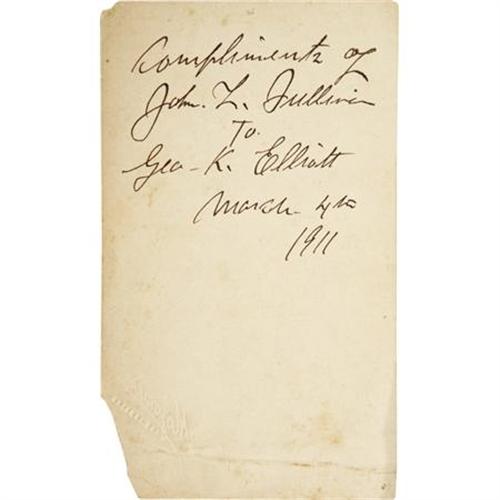 Compliments of
John. L. Sullivan
To.
Geo - K. Elliott
March 4th
1911